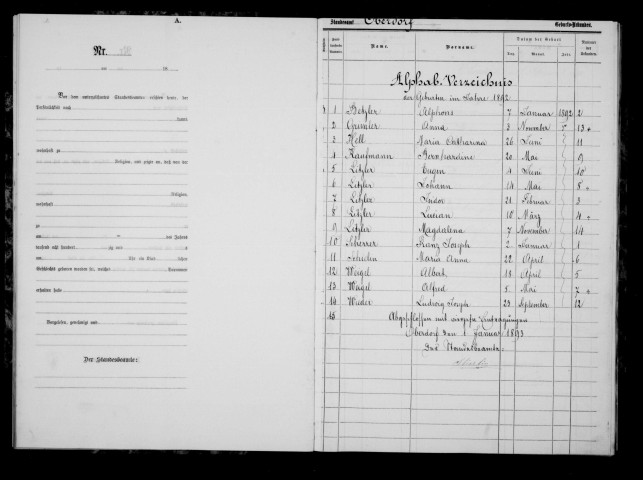 A.
Nr.
Vor dem unterzeichneten Standesbeamten erschien heute, der
Persönlichkeit nach
kannt,
wohnhaft zu
Religion, und zeigte an, daß von der
Religion,
wohnhaft
zu
am des Jahres
tausend acht hundert
um Uhr ein Kind
Geschlechts geboren worden sei, welches Vornamen
erhalten habe
Vorgelesen, genehmigt und
Der Standesbeamte:
Standesamt Oberdorf Geburts-Urkunden.
Name. Vorname. Datum der Geburt Nummer der Urkunden.
Tag. Monat. Jahr.
Alphab. Verzeichnis
der Geburten im Jahre 1892
1 Betzler Alphons 7 Januar 1892 2
2 Anna 3 November 13
3 Hell Maria Catharina 26 Juni 11
4 Kaufmann Bernhardine 20 Mai 9
5 Litzler Eugen 4 Juni 10
6 Litzler Johann 14 Mai 8
7 Litzler Isidor 21 Februar 3
8 Litzler Lucian 10 März 4
9 Litzler Magdalena 7 November 14
10 Scherrer Franz Joseph 2 Januar 1
11 Maria Anna 22 April 6
12 Weigel Albert 18 April 5
13 Alfred 5 Mai 7
14 Wieder Ludwig Joseph 23 September 12
15 Abgeschlossen mit vierzehn Eintragungen
Oberdorf den 1 Januar 1893
Der Standesbeamte: